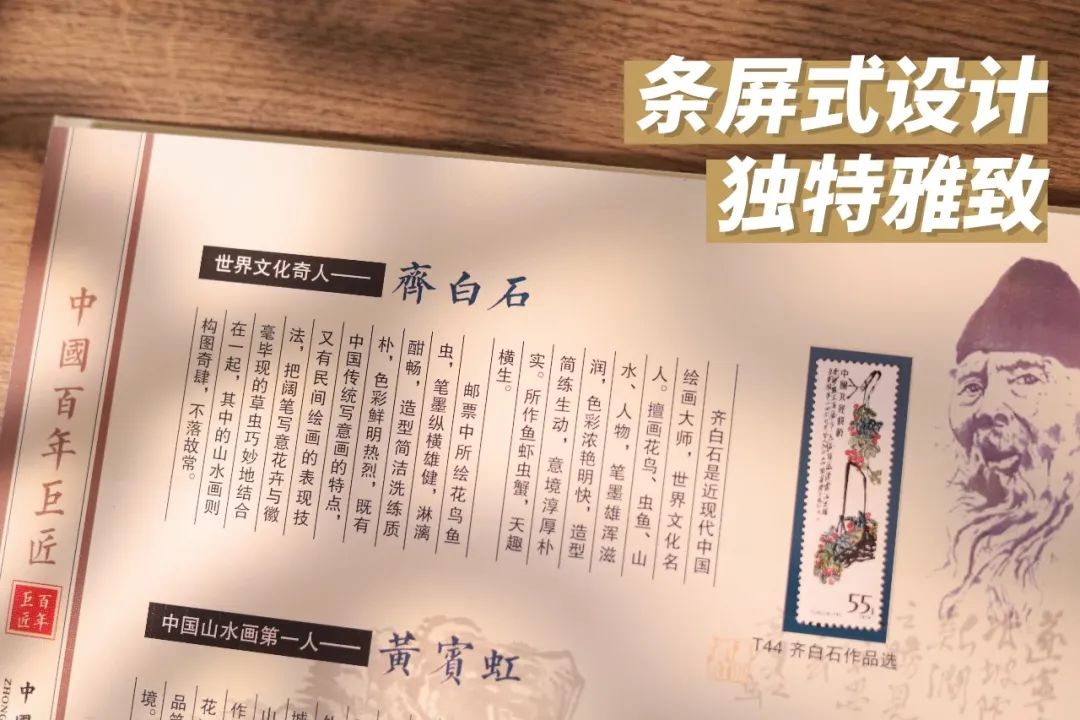 条屏式设计
独特雅致
中國百年巨匠
百年
巨匠
中國
ZHONG
世界文化奇人——
齊白石
齐白石是近现代中国
绘画大师，世界文化名
人。擅画花鸟、虫鱼、山
水、人物，笔墨雄浑滋
润，色彩浓艳明快，造型
简练生动，意境淳厚朴
实。所作鱼虾虫蟹，天趣
横生。
邮票中所绘花鸟鱼
虫，笔墨纵横雄健，淋漓
酣畅，造型简洁洗练质
朴，色彩鲜明热烈，既有
中国传统写意画的特点，
又有民间绘画的表现技
法，把阔笔写意花卉与微
毫毕现的草虫巧妙地结合
在一起，其中的山水画则
构图奇肆，不落故常。
55分
T44 齐白石作品选
中国山水画第一人——
黃賓虹
山
作
花
品
境。